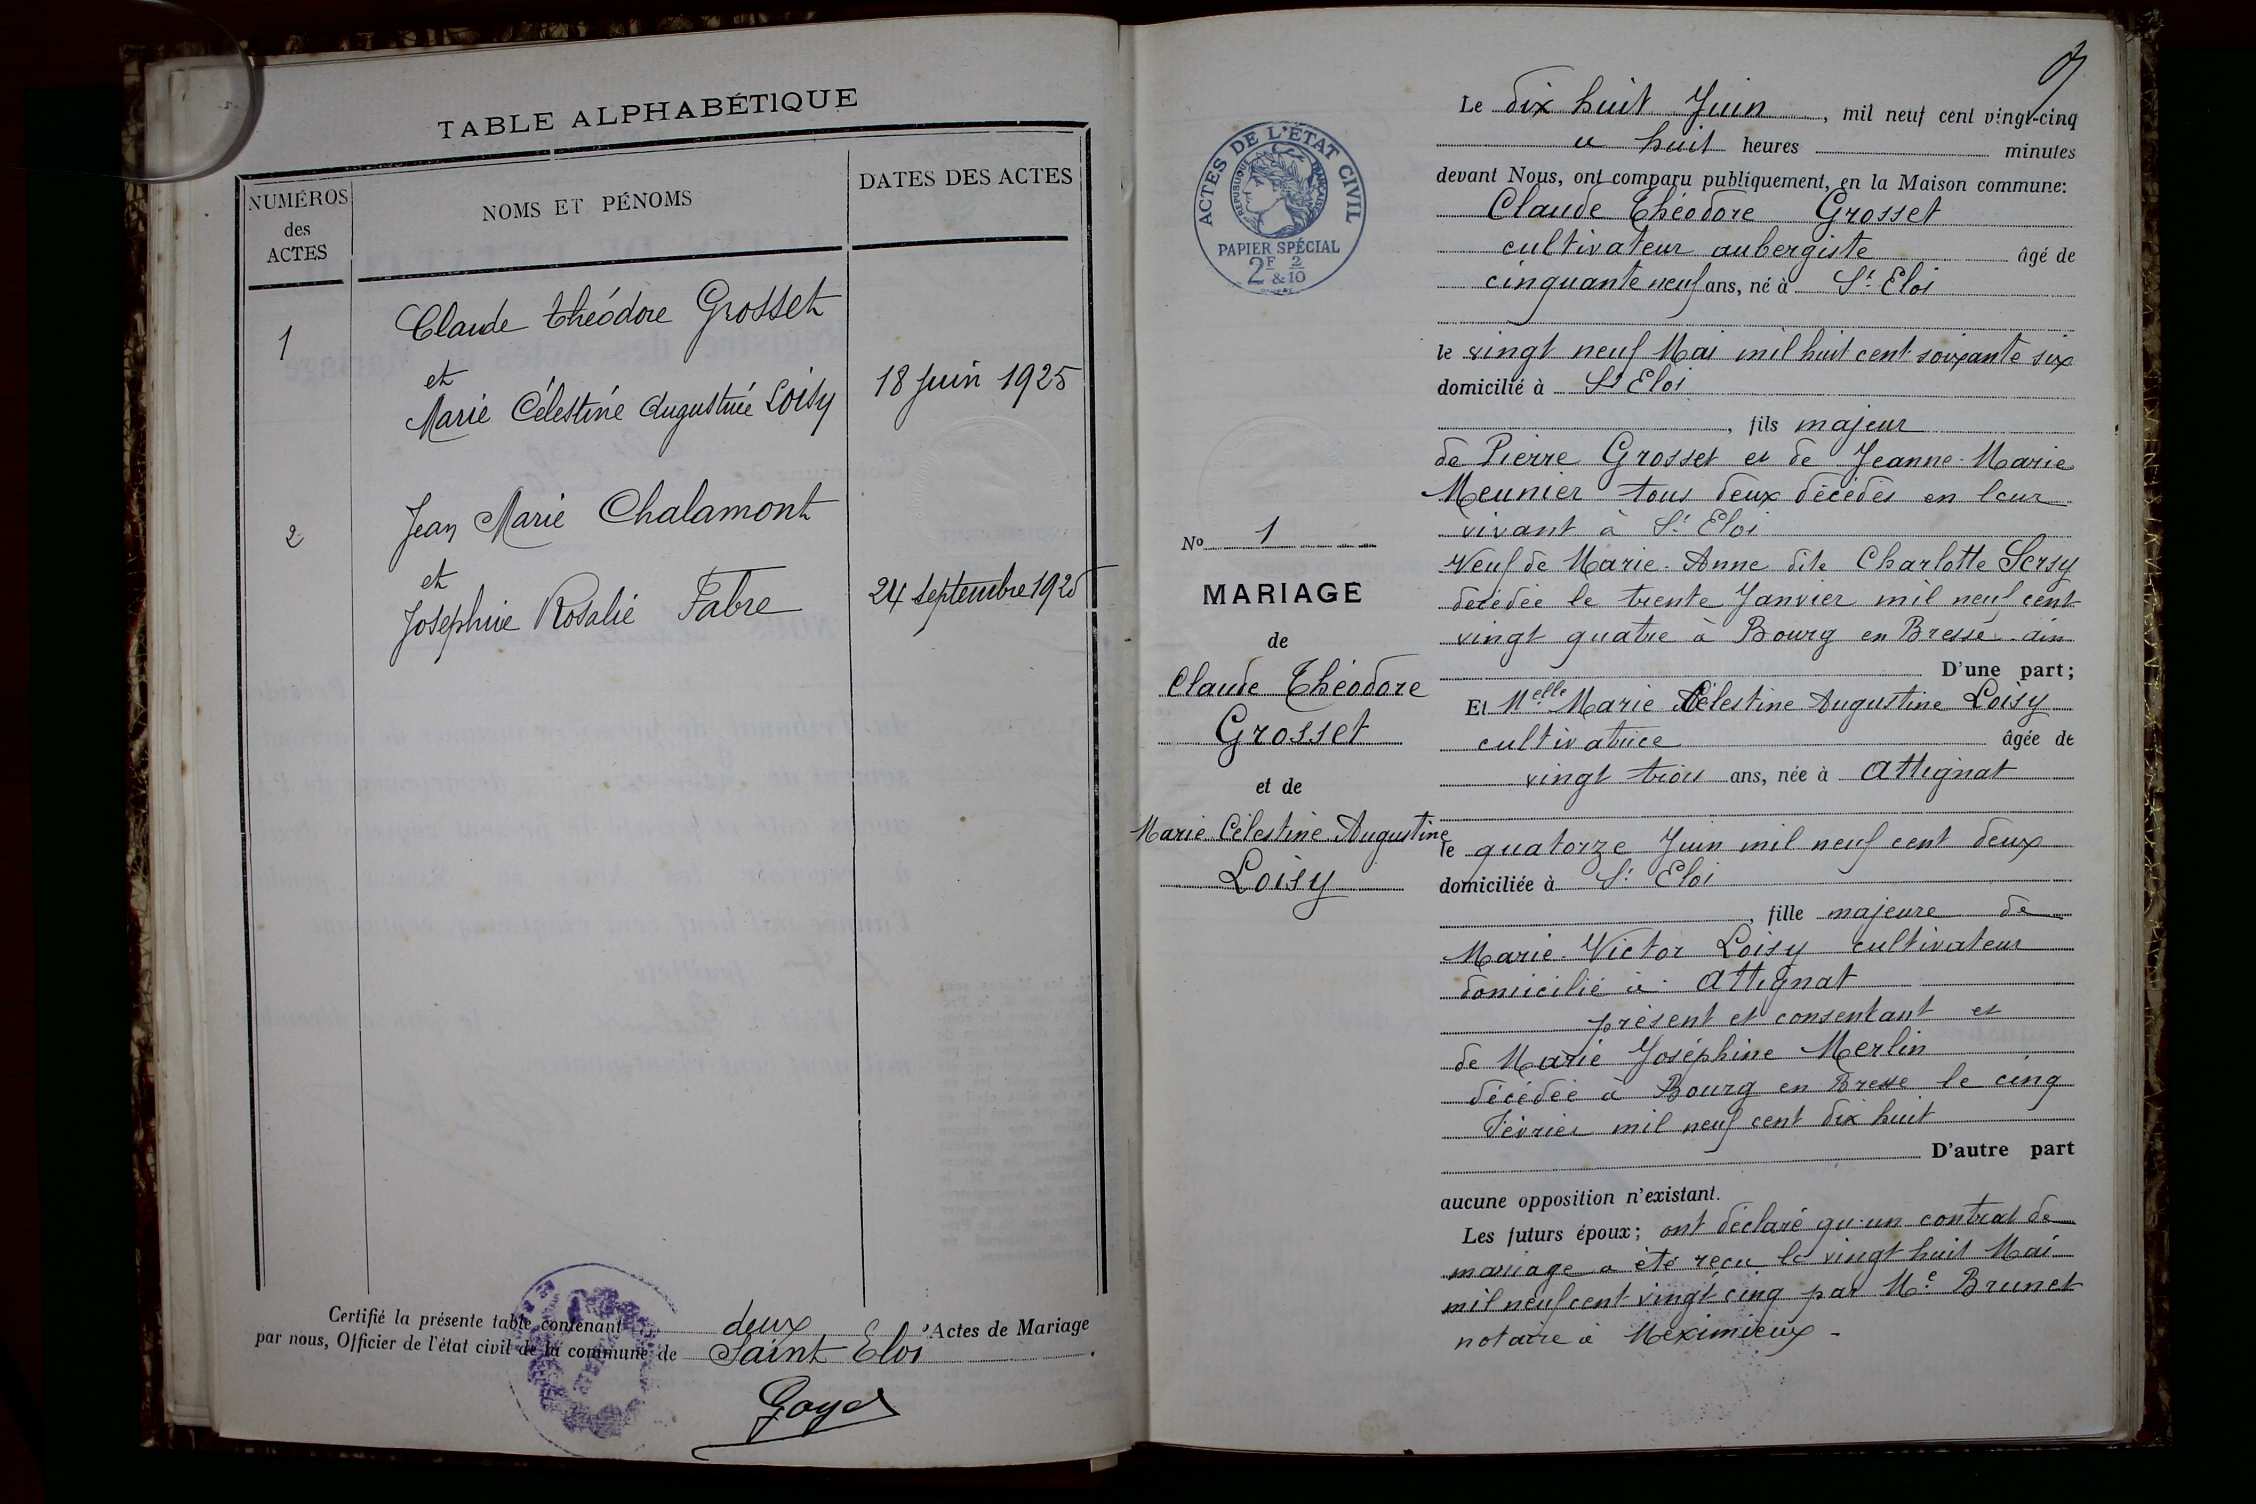 TABLE ALPHABÉTIQUE
NUMÉROS
des
ACTES
NOMS ET PÉNOMS
DATES DES ACTES
1
Claude Théodore Grosset
et
Marie Célestine Augustine Loisy
18 juin 1925
2
Jean Marie Chalamont
et
Joséphine Rosalie Fabre
24 septembre 1925
Certifié la présente table contenant deux Actes de Mariage
par nous, Officier de l'état civil de la commune de Saint Eloi.
ACTES DE L'ÉTAT CIVIL
RÉPUBLIQUE FRANÇAISE
PAPIER SPÉCIAL
2F & 2/10
No 1
MARIAGE
de
Claude Théodore
Grosset
et de
Marie Célestine Augustine
Loisy
Le dix huit Juin, mil neuf cent vingt-cinq
à huit heures minutes
devant Nous, ont comparu publiquement, en la Maison commune:
Claude Théodore Grosset
cultivateur aubergiste âgé de
cinquante neuf ans, né à St Eloi
le vingt neuf Mai mil huit cent soixante six
domicilié à St Eloi
, fils majeur
de Pierre Grosset et de Jeanne-Marie
Meunier tous deux décédés en leur
vivant à St Eloi
Veuf de Marie-Anne dite Charlotte Sersy
décédée le trente Janvier mil neuf cent
vingt quatre à Bourg en Bresse - ain
D'une part;
Et Melle Marie Célestine Augustine Loisy
cultivatrice âgée de
vingt trois ans, née à Attignat
le quatorze Juin mil neuf cent deux
domiciliée à St Eloi
, fille majeure de
Marie-Victor Loisy cultivateur
domicilié à Attignat
présent et consentant et
de Marie Joséphine Merlin
décédée à Bourg en Bresse le cinq
Février mil neuf cent dix huit
D'autre part
aucune opposition n'existant.
Les futurs époux; ont déclaré qu'un contrat de
mariage a été reçu le vingt huit Mai
mil neuf cent vingt cinq par Me Brunet
notaire à Meximieux -